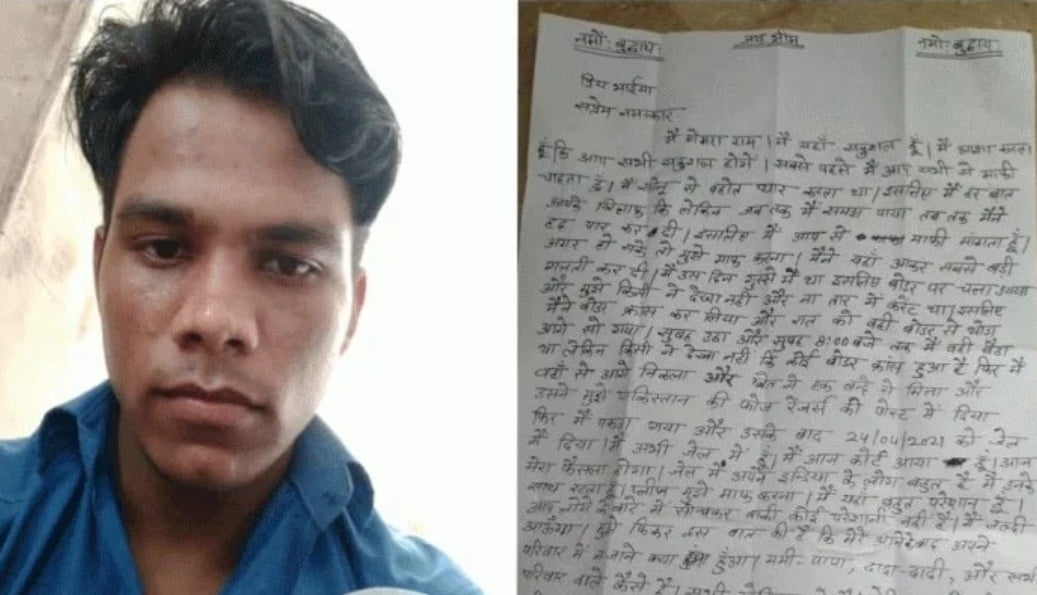 नमोः बुद्धाय जय भीम नमोः बुद्धाय
प्रिय भाईया
सप्रेम नमस्कार
मैं गेमरा राम । मैं यहाँ सकुशल हूँ। मैं आशा करता
हूँ कि आप सभी सकुशल होंगे । सबसे पहले मैं आप सभी से माफी
चाहता हूँ। मैं से बहोत प्यार करता था। इसलिए मैं हर बात
आपके खिलाफ कि लेकिन जब तक मैं समझ पाया तब तक मैंने
हद पार कर दी। इसलिए मैं आप से माफी मांगता हूँ।
अगर हो सके तो मुझे माफ करना। मैंने यहाँ आकर सबसे बड़ी
गलती कर दी। मैं उस दिन गुस्से में था इसलिए बोडर पर चला आया
और मुझे किसी ने देखा नहीं और ना तार में करंट था। इसलिए
मैंने बोडर क्रास कर लिया और रात को वही बोडर से थोडा
आगे सो गया। सुबह उठा और सुबह 8:00 बजे तक मैं वही बैठा
था लेकिन किसी ने देखा नही कि कोई बोडर क्रांस हुआ है फिर मैं
वहाँ से आगे निकला और खेत में एक बन्दे से मिला और
उसने मुझे पाकिस्तान की फोज रेंजर्स की पोस्ट में दिया
फिर मैं पकडा गया और उसके बाद 24/04/2021 को जेल
में दिया। मैं अभी जेल में हूँ। मैं आज कोर्ट आया हूँ। आज
मेरा फैसला होगा। जेल में अपने इन्डिया के लोग बहुत है मैं उनके
साथ रहता हूँ। प्लीज मुझे माफ करना। मैं यहाँ बहुत परेशान हूँ।
आप लोगो के बारे में सोचकर बाकी कोई परेशानी नही है। मैं जल्दी
आऊंगा। मुझे फिकर इस बात की है कि मेरे आनेके बाद अपने
परिवार में न जाने क्या हुआ हुँआ। ममी-पापा, दादा-दादी, और सभी
परिवार वाले कैसे है।